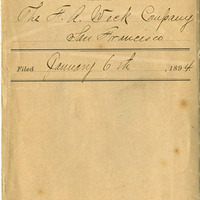 The F. A. Weck Company
San Francisco
Filed January 6th, 1894